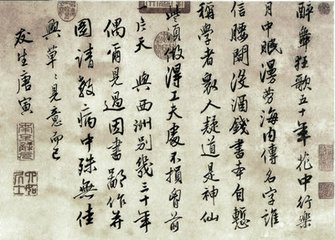 醉舞狂歌五十年花中行樂
月中眠漫勞海內傳名字誰
信腰間沒酒錢書本自慙
稱學者衆人疑道是神仙
些須做得工夫處不損胸前
一片天 與西洲別幾三十年
偶爾見過因書鄙作并
圖請教病中殊無佳
興草〻見意而已
友生唐寅
南京解元
六如居士